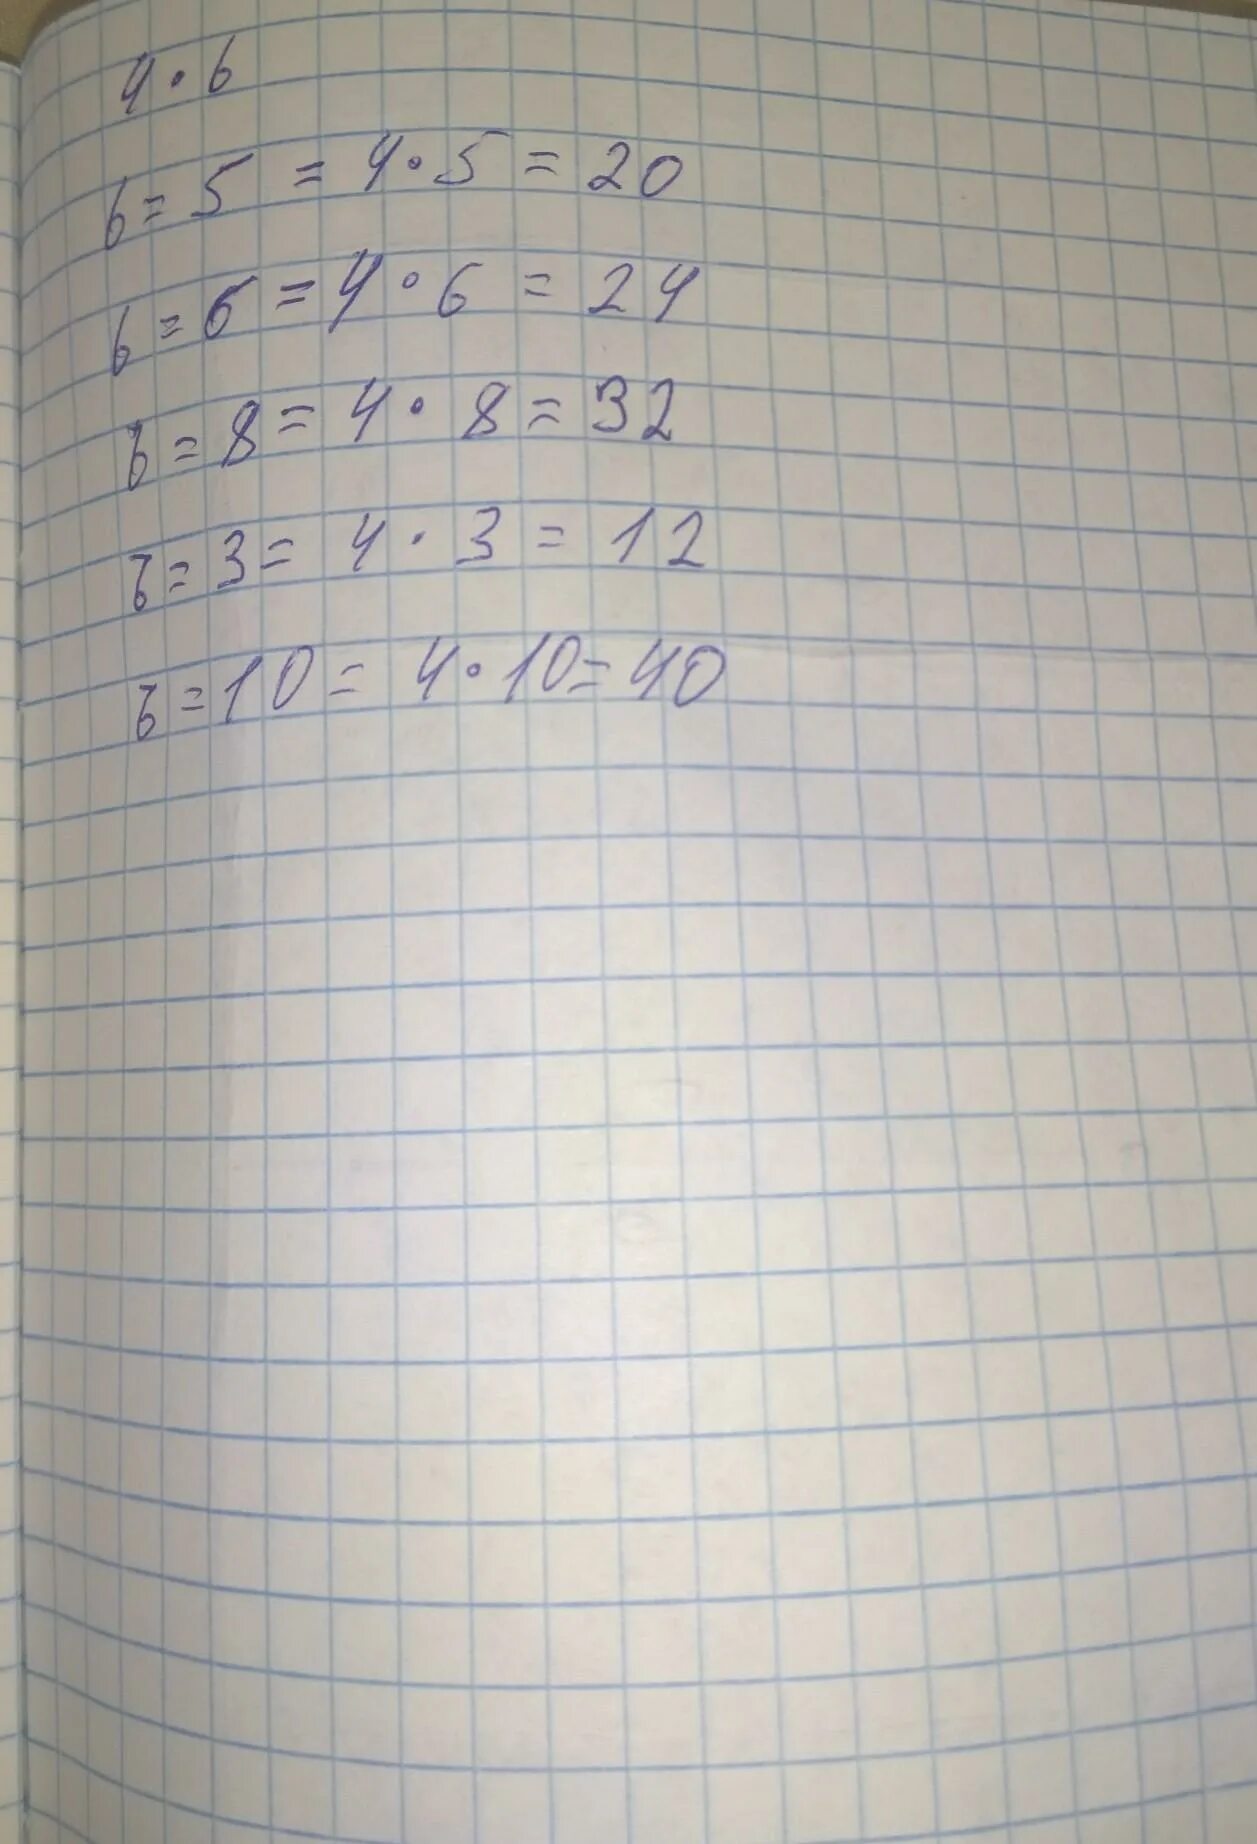 4·b
b=5 = 4·5 = 20
b=6 = 4·6 = 24
b=8= 4·8=32
b=3= 4·3=12
b=10= 4·10=40